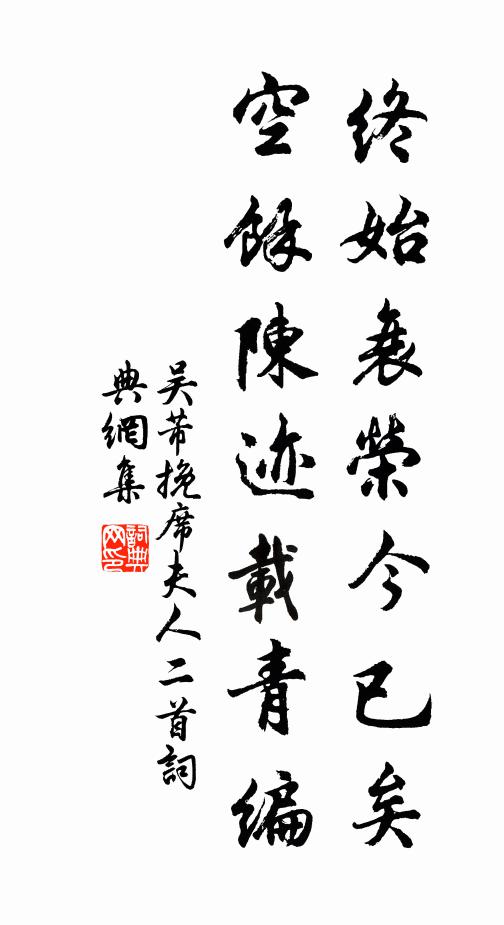 終始哀榮今已矣
空餘陳迹載青編
吳芾挽席夫人二首詞
典網集
詞典
网印